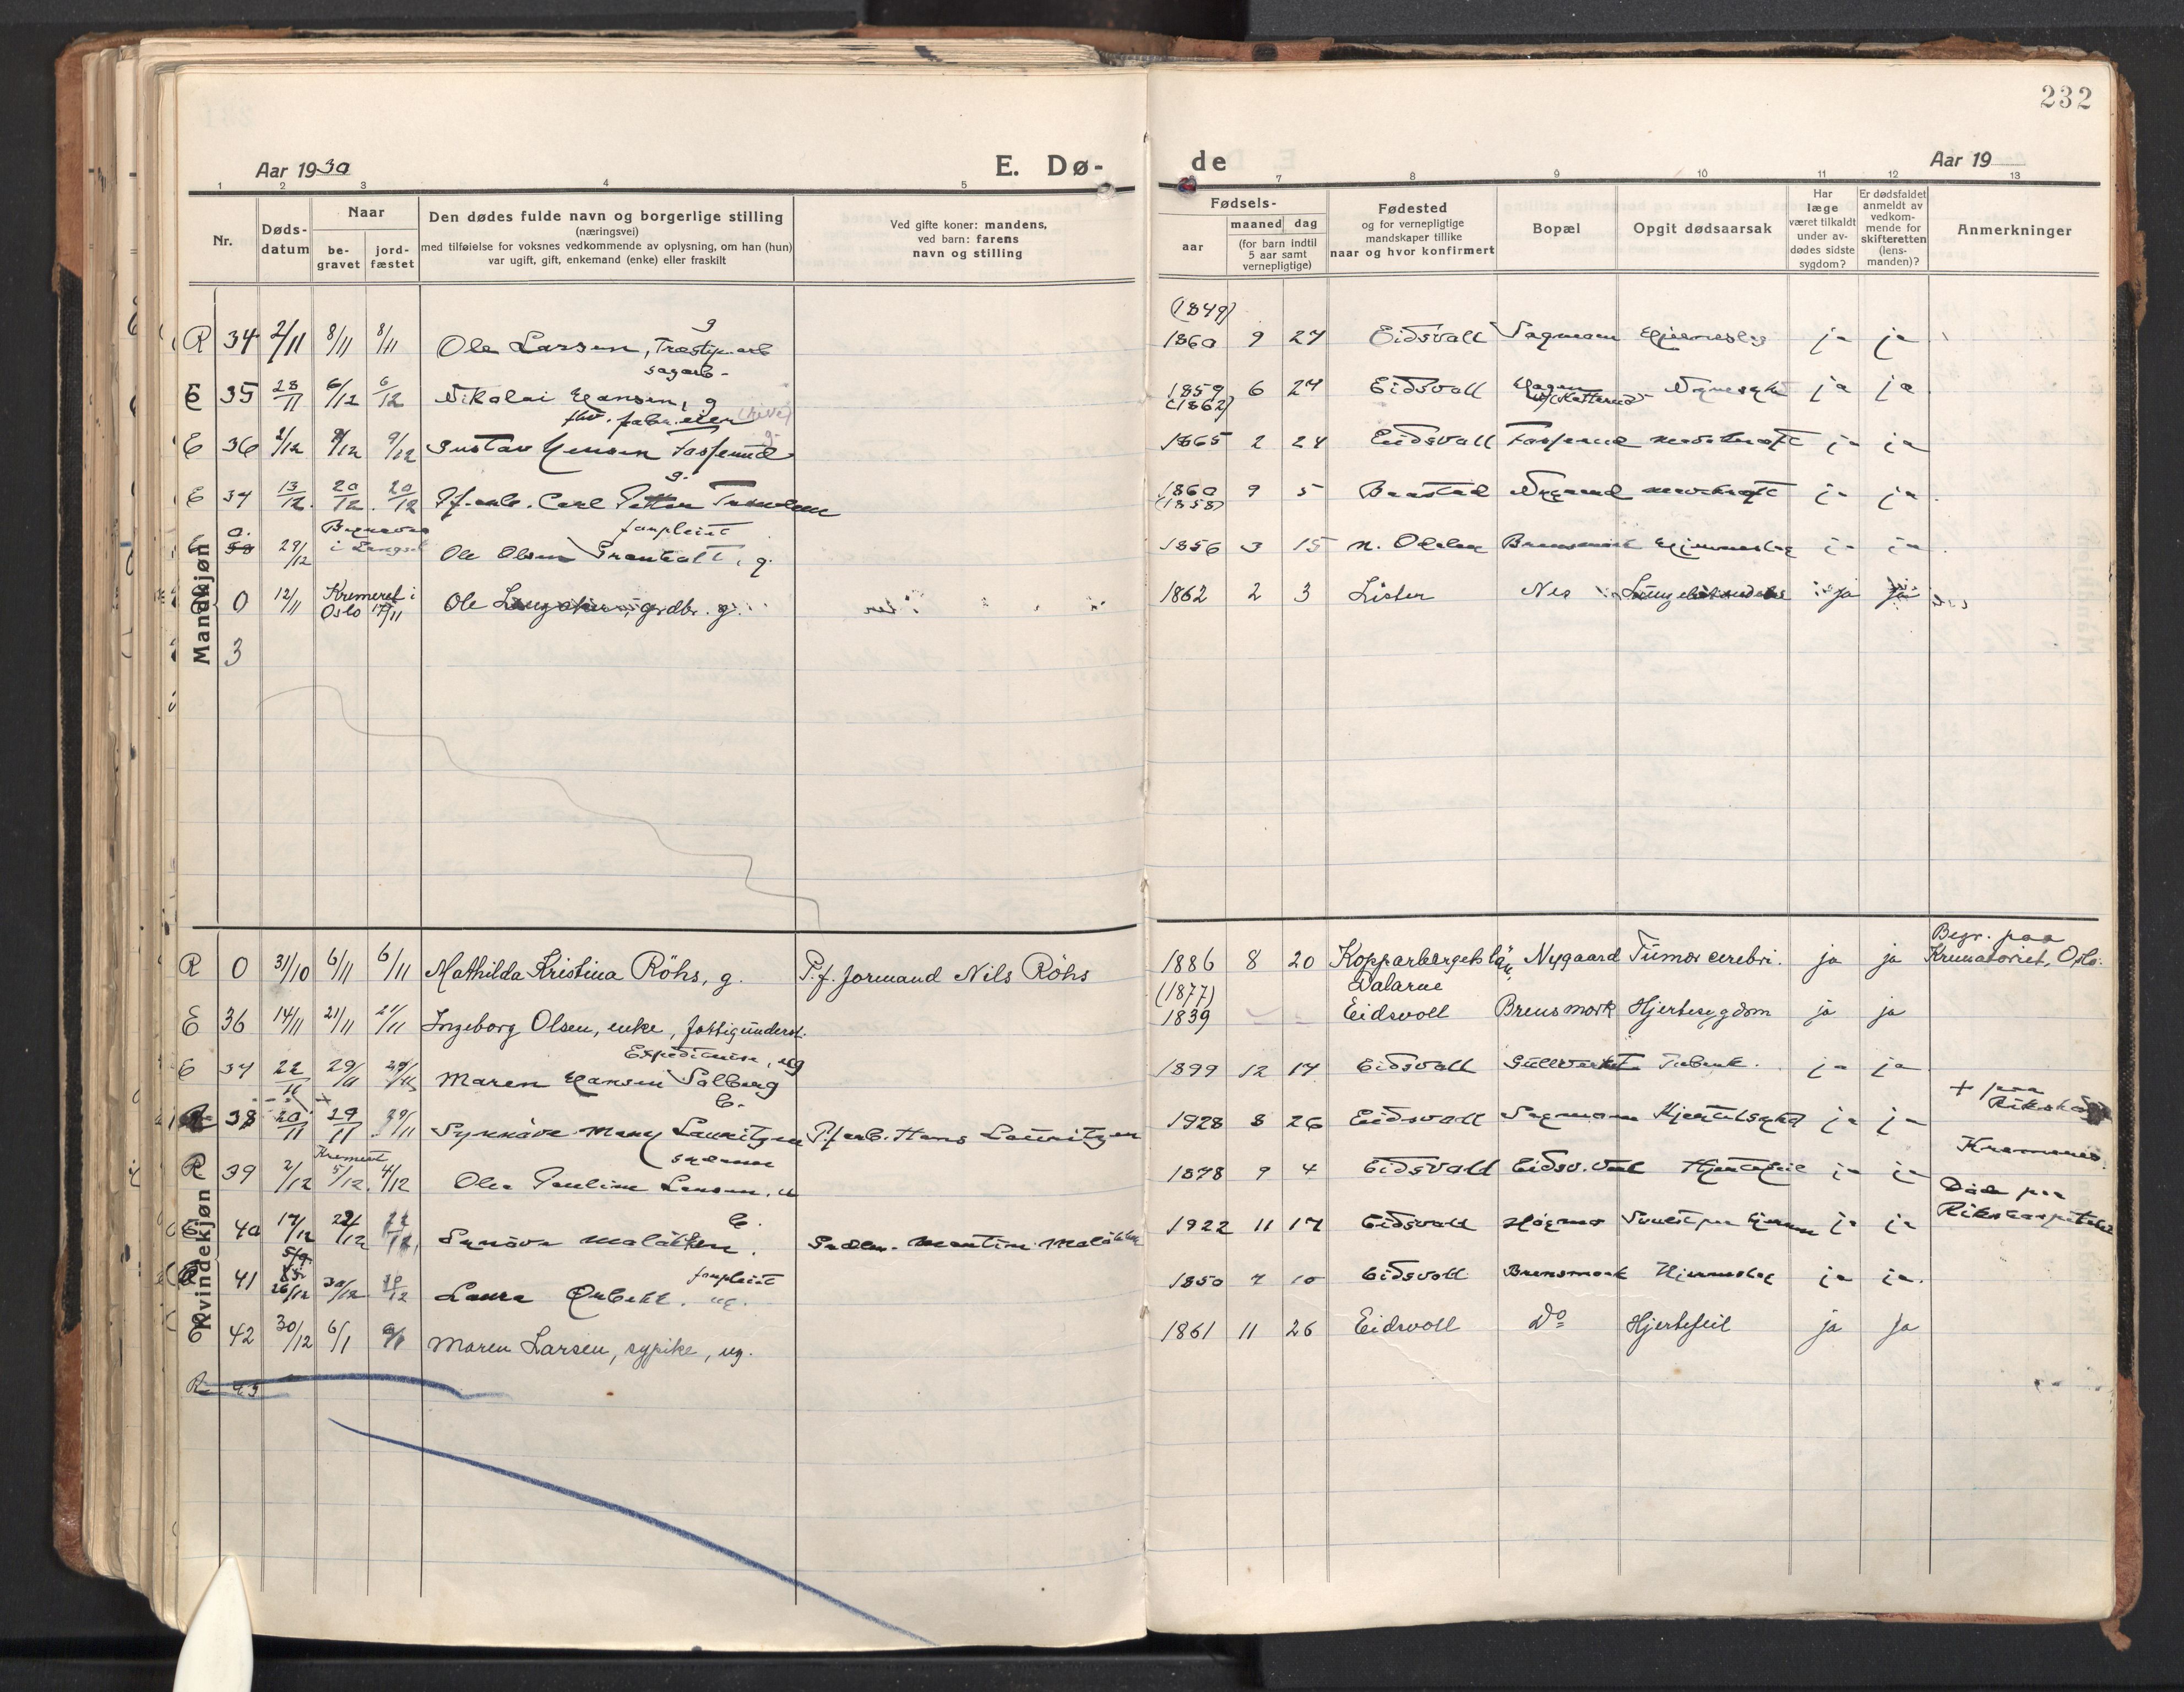 232
Aar 1930
E. Dø-
de
Aar 19
1 2 3 4 5 7 8 9 10 11 12 13
Nr.
Døds-
datum
Naar
be-
gravet
jord-
fæstet
Den dødes fulde navn og borgerlige stilling
(næringsvei)
med tilføielse for voksnes vedkommende av oplysning, om han (hun)
var ugift, gift, enkemand (enke) eller fraskilt
Ved gifte koner: mandens,
ved barn: farens
navn og stilling
Fødsels-
aar
maaned dag
(for barn indtil
5 aar samt
vernepligtige)
Fødested
og for vernepligtige
mandskaper tillike
naar og hvor konfirmert
Bopæl
Opgit dødsaarsak
Har
læge
været tilkaldt
under av-
dødes sidste
sygdom?
Er dødsfaldet
anmeldt av
vedkom-
mende for
skifteretten
(lens-
manden)?
Anmerkninger
Mandkjøn
g (1849)
R 34 2/11 8/11 8/11 Ole Larsen, 1860 9 27 Eidsvoll Sagmoen ja ja
sagarb.
E 35 28/11 6/12 6/12 Nikolai Hansen, g 1859 (1862) 6 27 Eidsvoll Hagen ja ja
fhv. fabr.eier
E 36 2/12 9/12 9/12 Gustav Jensen Fosserud g. 1865 2 24 Eidsvoll Fosserud ja ja
g.
E 37 13/12 20/12 20/12 P.f.arb. Carl Petter 1860 (1858) 9 5 Baastad Nygaard ja ja
Begraves i forpleiet
29/12 Ole Olsen g. 1856 3 15 N. Odalen Brensmork Hjerneslag ja ja
0 12/11 Kremeret i Oslo 17/11 Ole grdbr. g. 1862 2 3 Lister Nes ja ja
3
Kvindekjøn
R 0 31/10 6/11 6/11 Mathilda Kristina Röhs, g. P.f. formand Nils Röhs 1886 8 20 Kopparbergets län, Dalarne Nygaard Tumor cerebri. ja ja Begr. paa Krematoriet, Oslo.
E 36 14/11 21/11 21/11 Ingeborg Olsen, enke, fattigunderst. (1877) 1839 Eidsvoll Brensmork Hjertesygdom ja ja
Expeditrise, ug
E 37 22/11 29/11 29/11 Maren Hansen Solberg 1899 12 17 Eidsvoll Gullverket Tuberk. ja ja
B.
R 38 20/11 29/11 29/11 Synnöve Mary Lauritzen P.f.arb. Hans Lauritzen 1928 8 26 Eidsvoll Sagmoen ja ja + paa
Kremert
R 39 2/12 5/12 4/12 Olea Pauline Larsen. 1878 9 4 Eidsvoll Eidsv. Verk Hjertefeil ja ja Kremeres.
B.
E 40 17/12 22/12 22/12 Synöve Maløkken. Grdbr. Martin Maløkken 1922 11 17 Eidsvoll Høgmo ja ja Døde paa Rikshospitalet
forpleiet
41 26/12 30/12 30/12 Laura ug. 1850 7 10 Eidsvoll Brensmork Hjerneslag ja ja.
42 30/12 6/1 6/1 Maren Larsen, sypike, ug. 1861 11 26 Eidsvoll Do Hjertefeil ja ja
R 43